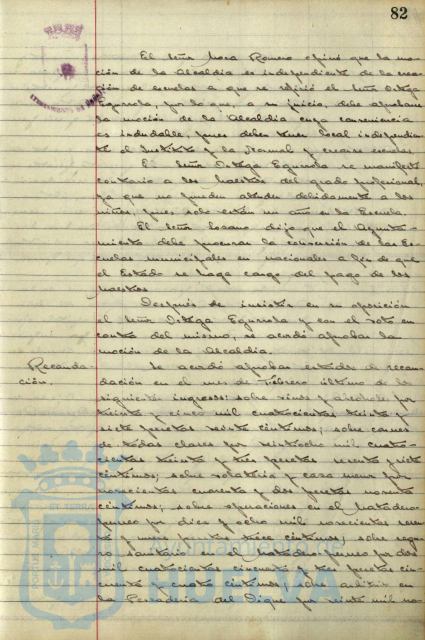 82
El Señor Mora Romero opinó que la mo-
ción de la Alcaldía es independiente de la crea-
ción de escuelas a que se refirió el Señor Ortega
Eguirrola, por lo que, a su juicio, debe aprobarse
la moción de la Alcaldía cuya conveniencia
es indudable, pues deben tener local independien-
te el Instituto y la Normal y crearse escuelas
El Señor Ortega Eguirrola se manifestó
contrario a los Maestros del grado profesional,
ya que no pueden atender debidamente a los
niños, pues solo están un año en la Escuela.
El Señor Lozano dijo que el Ayunta-
miento debe procurar la conversión de las Es-
cuelas municipales en nacionales a fin de que
el Estado se haga cargo del pago de los
Maestros
Después de insistir en su oposición
el Señor Ortega Eguirrola y con el voto en
contra del mismo, se acordó aprobar la
moción de la Alcaldía.
Recauda-
ción.
Se acordó aprobar estado de recau-
dación en el mes de Febrero último de los
siguientes ingresos: sobre vinos y alcoholes por
treinta y cinco mil cuatrocientas treinta y
siete pesetas veinte céntimos; sobre carnes
de todas clases por veintiocho mil cuatro-
cientas treinta y tres pesetas sesenta y siete
céntimos; sobre volatería y caza menor por
novecientas cuarenta y dos pesetas noventa
céntimos; sobre operaciones en el Matadero
público por diez y ocho mil novecientas
y pesetas trece céntimos; sobre
sanitario en el Matadero público por dos
mil cuatrocientas cincuenta y tres pesetas cin-
cuenta y cuatro céntimos; sobre arbitrio en
la Pescadería del Dique por veinte mil no-
PORTUS MARIS ET TERRAE
Ayuntamiento de
HUELVA